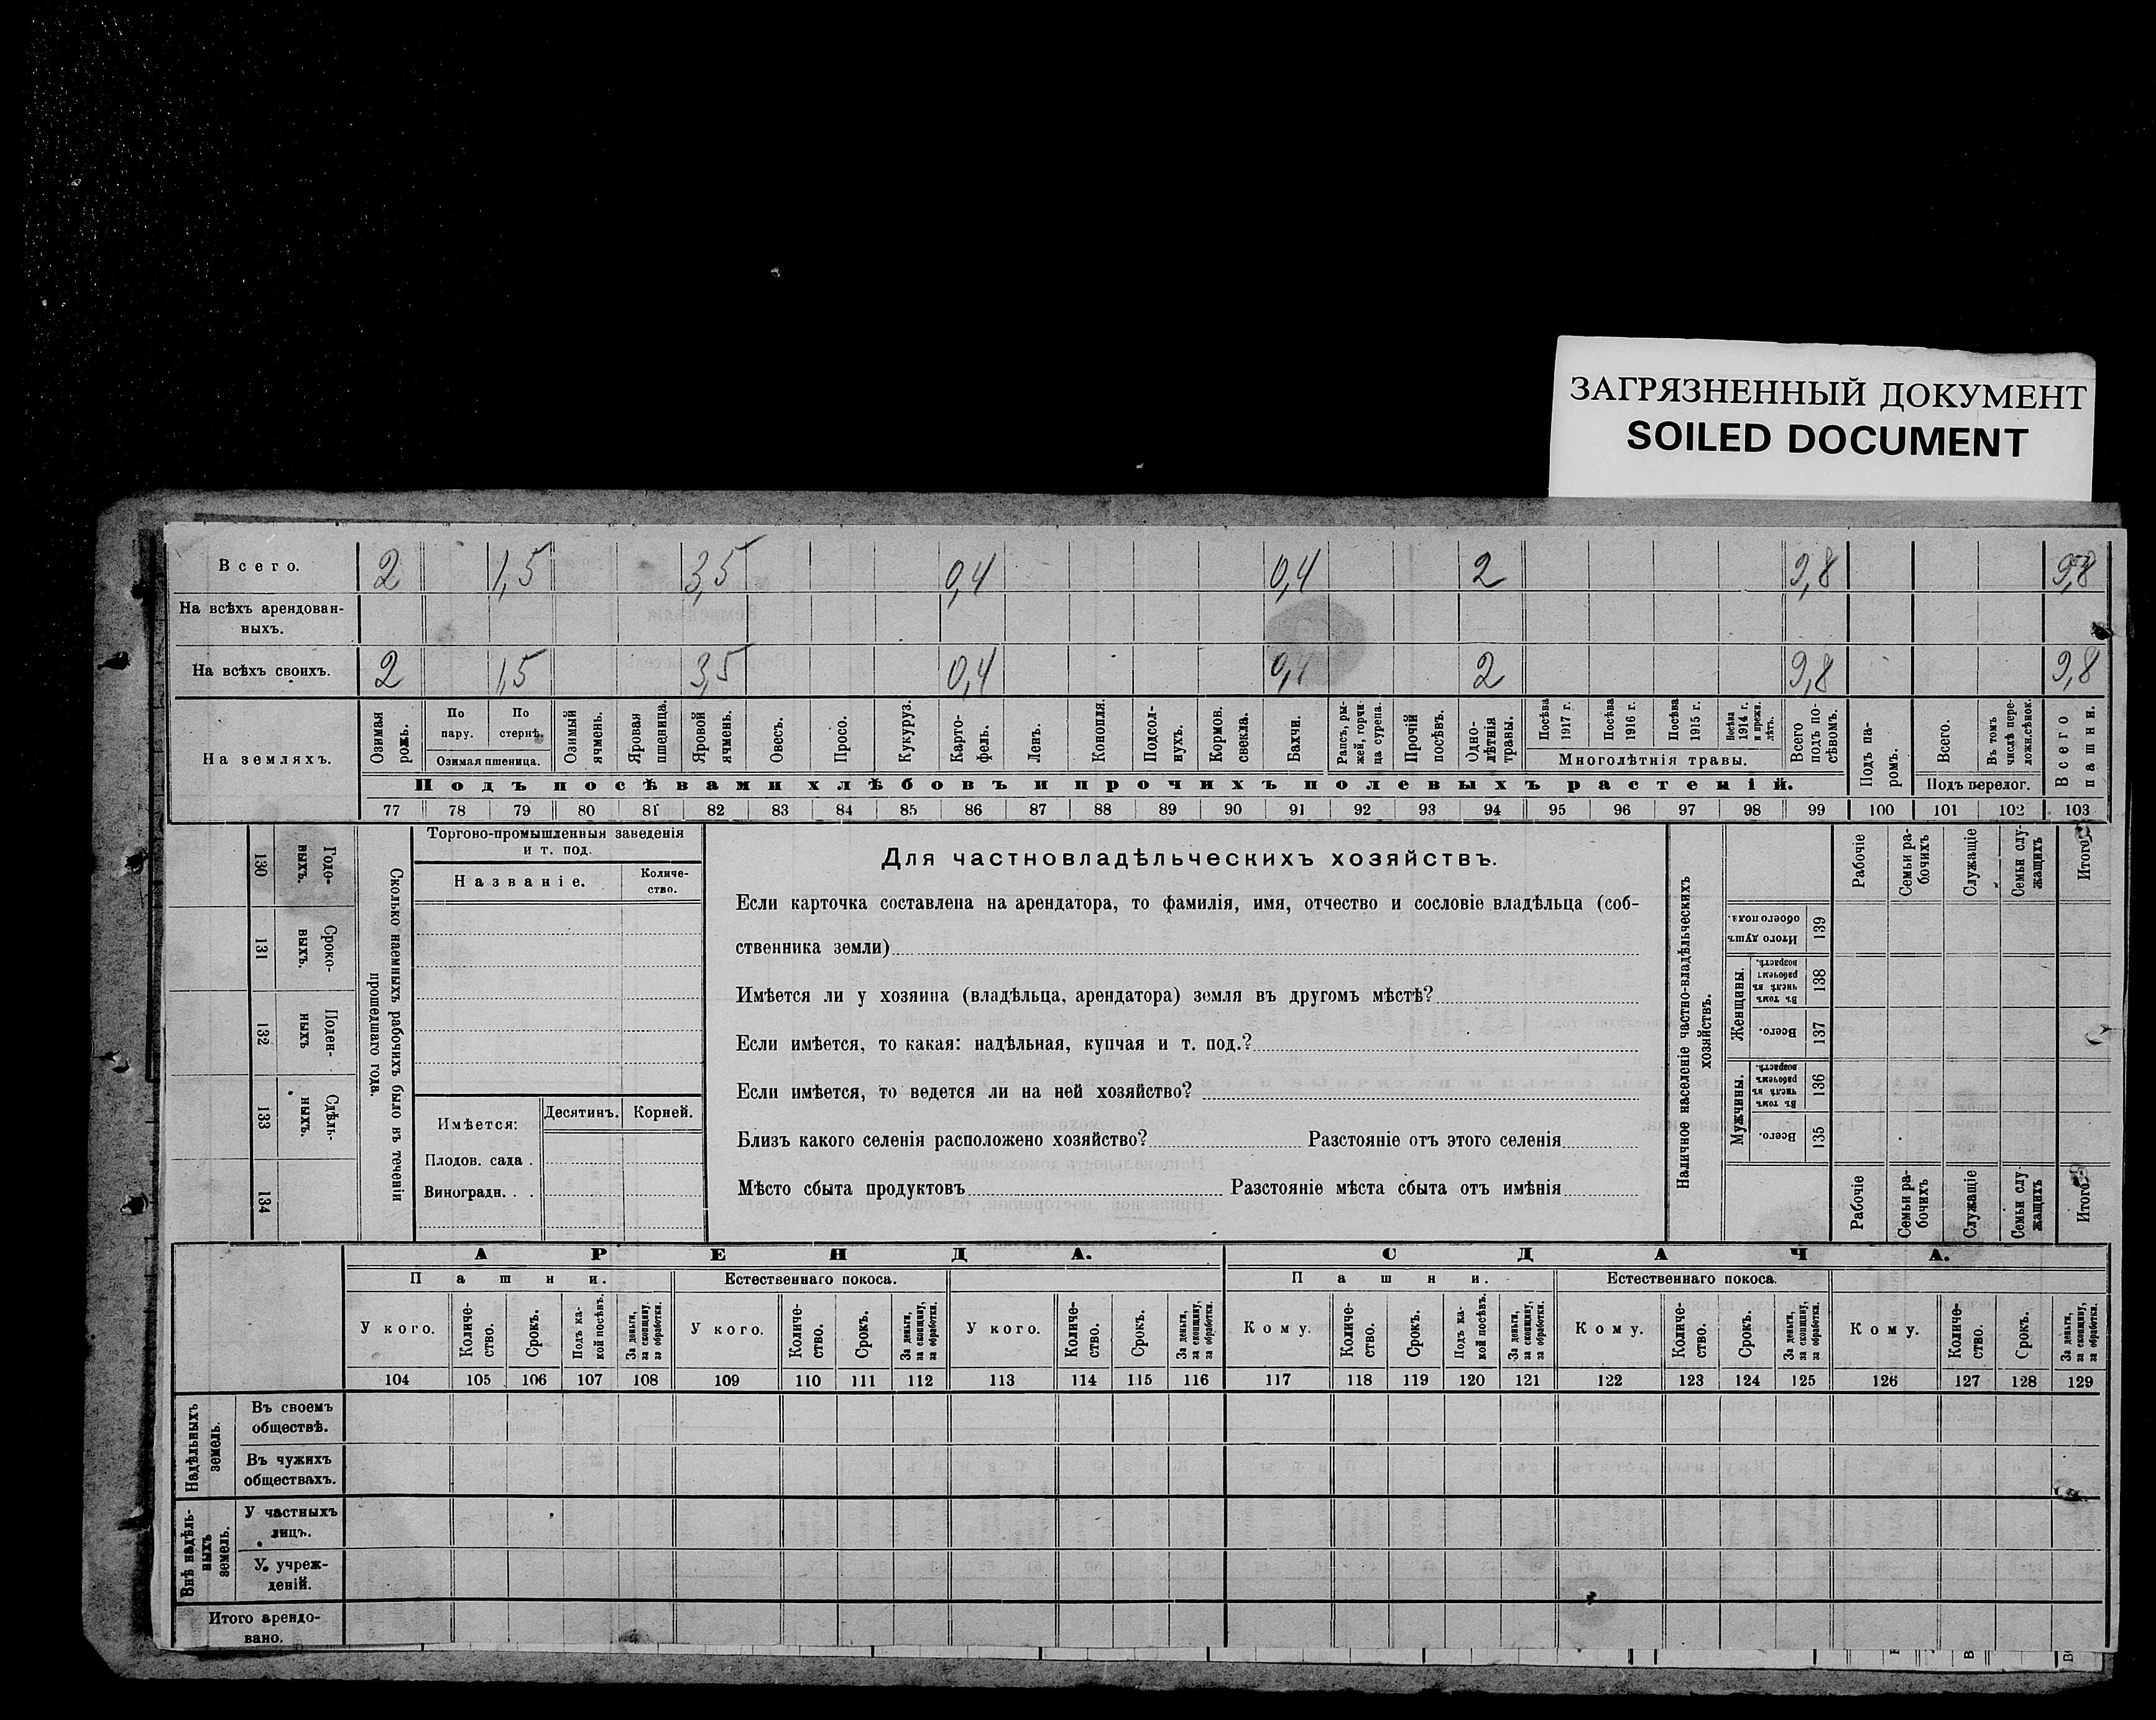 ЗАГРЯЗНЕННЫЙ ДОКУМЕНТ
SOILED DOCUMENT
Всего. 2 1,5 3,5 0,4 0,4 2 9,8 9,8
На всѣхъ арендован-
ныхъ.
На всѣхъ своихъ. 2 1,5 3,5 0,4 0,4 2 9,8 9,8
На земляхъ.
Озимая рожь.
По пару.
По стернѣ.
Озимая пшеница.
Озимый ячмень.
Яровая пшеница.
Яровой ячмень.
Овесъ.
Просо.
Кукуруз.
Карто-
фель.
Ленъ.
Конопля.
Подсол-
нухъ.
Кормов. свекла.
Бахчи.
Рапсъ, ры-
жей, горчи-
ца сурепа.
Прочій посѣвъ.
Одно-
лѣтнія травы.
Посѣва 1917 г.
Посѣва 1916 г.
Посѣва 1915 г.
Посѣва 1914 г. и прежн. лѣтъ.
Многолѣтнія травы.
Всего подъ по-
сѣвомъ.
Подъ па-
ромъ.
Всего.
Въ томъ числѣ пере-
ложн.сѣнок.
Подъ перелог.
Всего пашни.
Подъ посѣвами хлѣбовъ и прочихъ полевыхъ растеній.
77 78 79 80 81 82 83 84 85 86 87 88 89 90 91 92 93 94 95 96 97 98 99 100 101 102 103
130 Годо-
выхъ.
131 Сроко-
выхъ.
132 Поден-
ныхъ
133 Сдѣль-
ныхъ.
134
Сколько наемныхъ рабочихъ было въ теченіи
прошедшаго года.
Торгово-промышленныя заведенія
и т. под.
Названіе.
Количе-
ство.
Имѣется:
Десятинъ. Корней.
Плодов. сада .
Виноградн. . .
Для частновладѣльческихъ хозяйствъ.
Если карточка составлена на арендатора, то фамилія, имя, отчество и сословіе владѣльца (соб-
ственника земли)
Имѣется ли у хозяина (владѣльца, арендатора) земля въ другомъ мѣстѣ?
Если имѣется, то какая: надѣльная, купчая и т. под.?
Если имѣется, то ведется ли на ней хозяйство?
Близъ какого селенія расположено хозяйство? Разстояніе отъ этого селенія
Мѣсто сбыта продуктовъ Разстояніе мѣста сбыта отъ имѣнія
Наличное населеніе частно-владѣльческихъ
хозяйствъ.
Рабочіе
Семьи ра-
бочихъ
Служащіе
Семьи слу-
жащихъ
Итого
Итого душъ обоего пола. 139
Женщины.
Въ томъ числѣ въ рабочемъ возрастѣ. 138
Всего. 137
Мужчины.
Въ томъ числѣ въ рабочемъ возрастѣ. 136
Всего. 135
Рабочіе
Семьи ра-
бочихъ
Служащіе
Семьи слу-
жащихъ
Итого
АРЕНДА. СДАЧА.
Пашни. Естественнаго покоса. Пашни. Естественнаго покоса.
У кого.
Количе-
ство.
Срокъ.
Подъ ка-
кой посѣвъ.
За деньги, за скопщину, за обработки.
У кого.
Количе-
ство.
Срокъ.
За деньги, за скопщину, за обработки.
У кого.
Количе-
ство.
Срокъ.
За деньги, за скопщину, за обработки.
Кому.
Количе-
ство.
Срокъ.
Подъ ка-
кой посѣвъ.
За деньги, за скопщину, за обработки.
Кому.
Количе-
ство.
Срокъ.
За деньги, за скопщину, за обработки.
Кому.
Количе-
ство.
Срокъ.
За деньги, за скопщину, за обработки.
104 105 106 107 108 109 110 111 112 113 114 115 116 117 118 119 120 121 122 123 124 125 126 127 128 129
Надѣльныхъ
земель.
Въ своемъ
обществѣ.
Въ чужихъ
обществахъ.
Внѣ надѣль-
ныхъ
земель.
У частныхъ
лицъ.
У учреж-
деній.
Итого арендо-
вано.